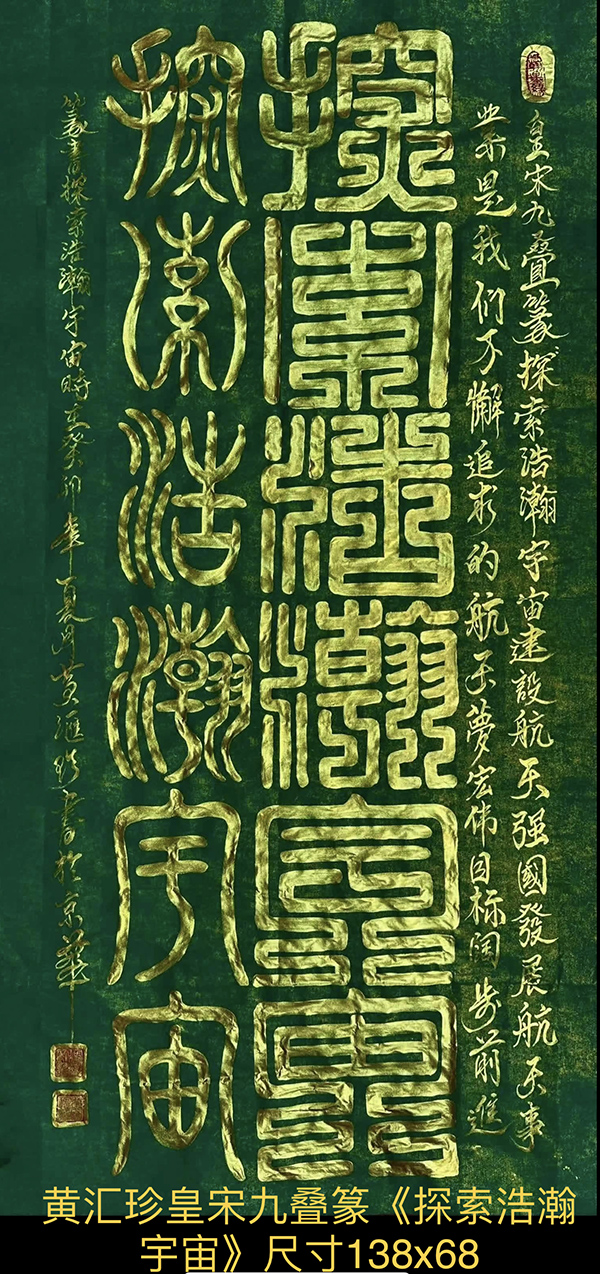 皇宋九疊篆探索浩瀚宇宙建設航天强國發展航天事
業是我们不懈追求的航天夢宏伟目标阔步前進
探索浩瀚宇宙
探索浩瀚宇宙
篆書探索浩瀚宇宙時在癸卯年夏月黄匯珍書於京華
黄汇珍皇宋九叠篆《探索浩瀚
宇宙》尺寸138x68